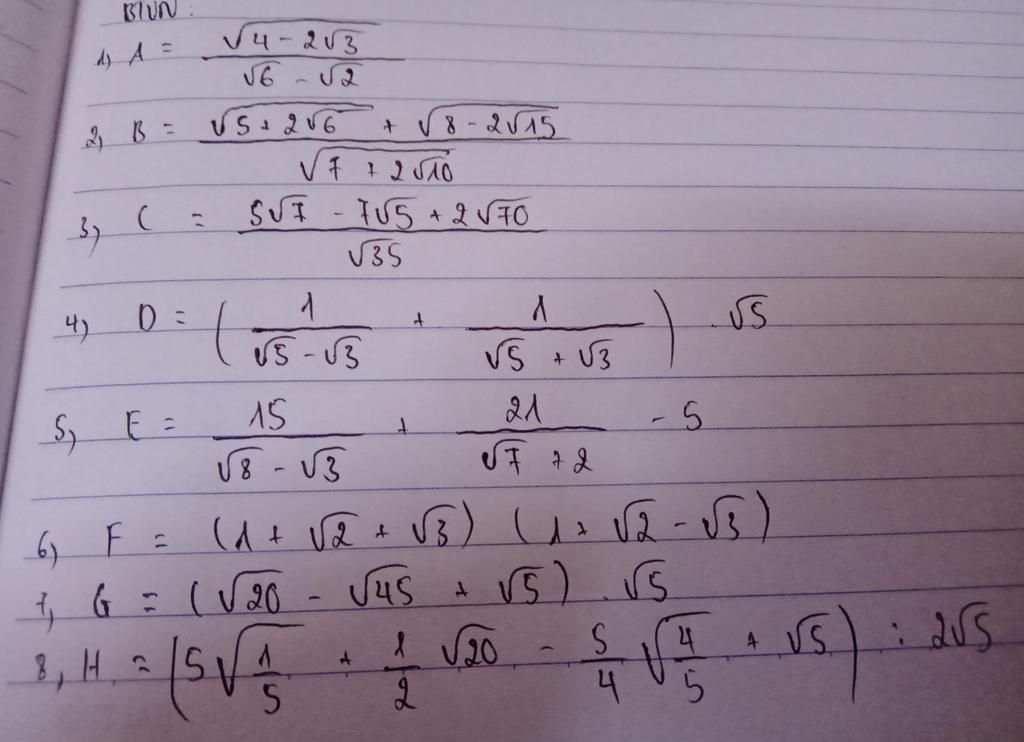 BTVN:
1) A = \frac{\sqrt{4 - 2\sqrt{3}}}{\sqrt{6} - \sqrt{2}}
2, B = \frac{\sqrt{5 + 2\sqrt{6}} + \sqrt{8 - 2\sqrt{15}}}{\sqrt{7 + 2\sqrt{10}}}
3) C = \frac{5\sqrt{7} - 7\sqrt{5} + 2\sqrt{70}}{\sqrt{35}}
4) D = \left( \frac{1}{\sqrt{5} - \sqrt{3}} + \frac{1}{\sqrt{5} + \sqrt{3}} \right) . \sqrt{5}
5, E = \frac{15}{\sqrt{8} - \sqrt{3}} + \frac{21}{\sqrt{7} + 2} - 5
6) F = (1 + \sqrt{2} + \sqrt{3}) (1 + \sqrt{2} - \sqrt{3})
7, G = (\sqrt{20} - \sqrt{45} + \sqrt{5}) . \sqrt{5}
8, H = \left( 5\sqrt{\frac{1}{5}} + \frac{1}{2}\sqrt{20} - \frac{5}{4}\sqrt{\frac{4}{5}} + \sqrt{5} \right) : 2\sqrt{5}